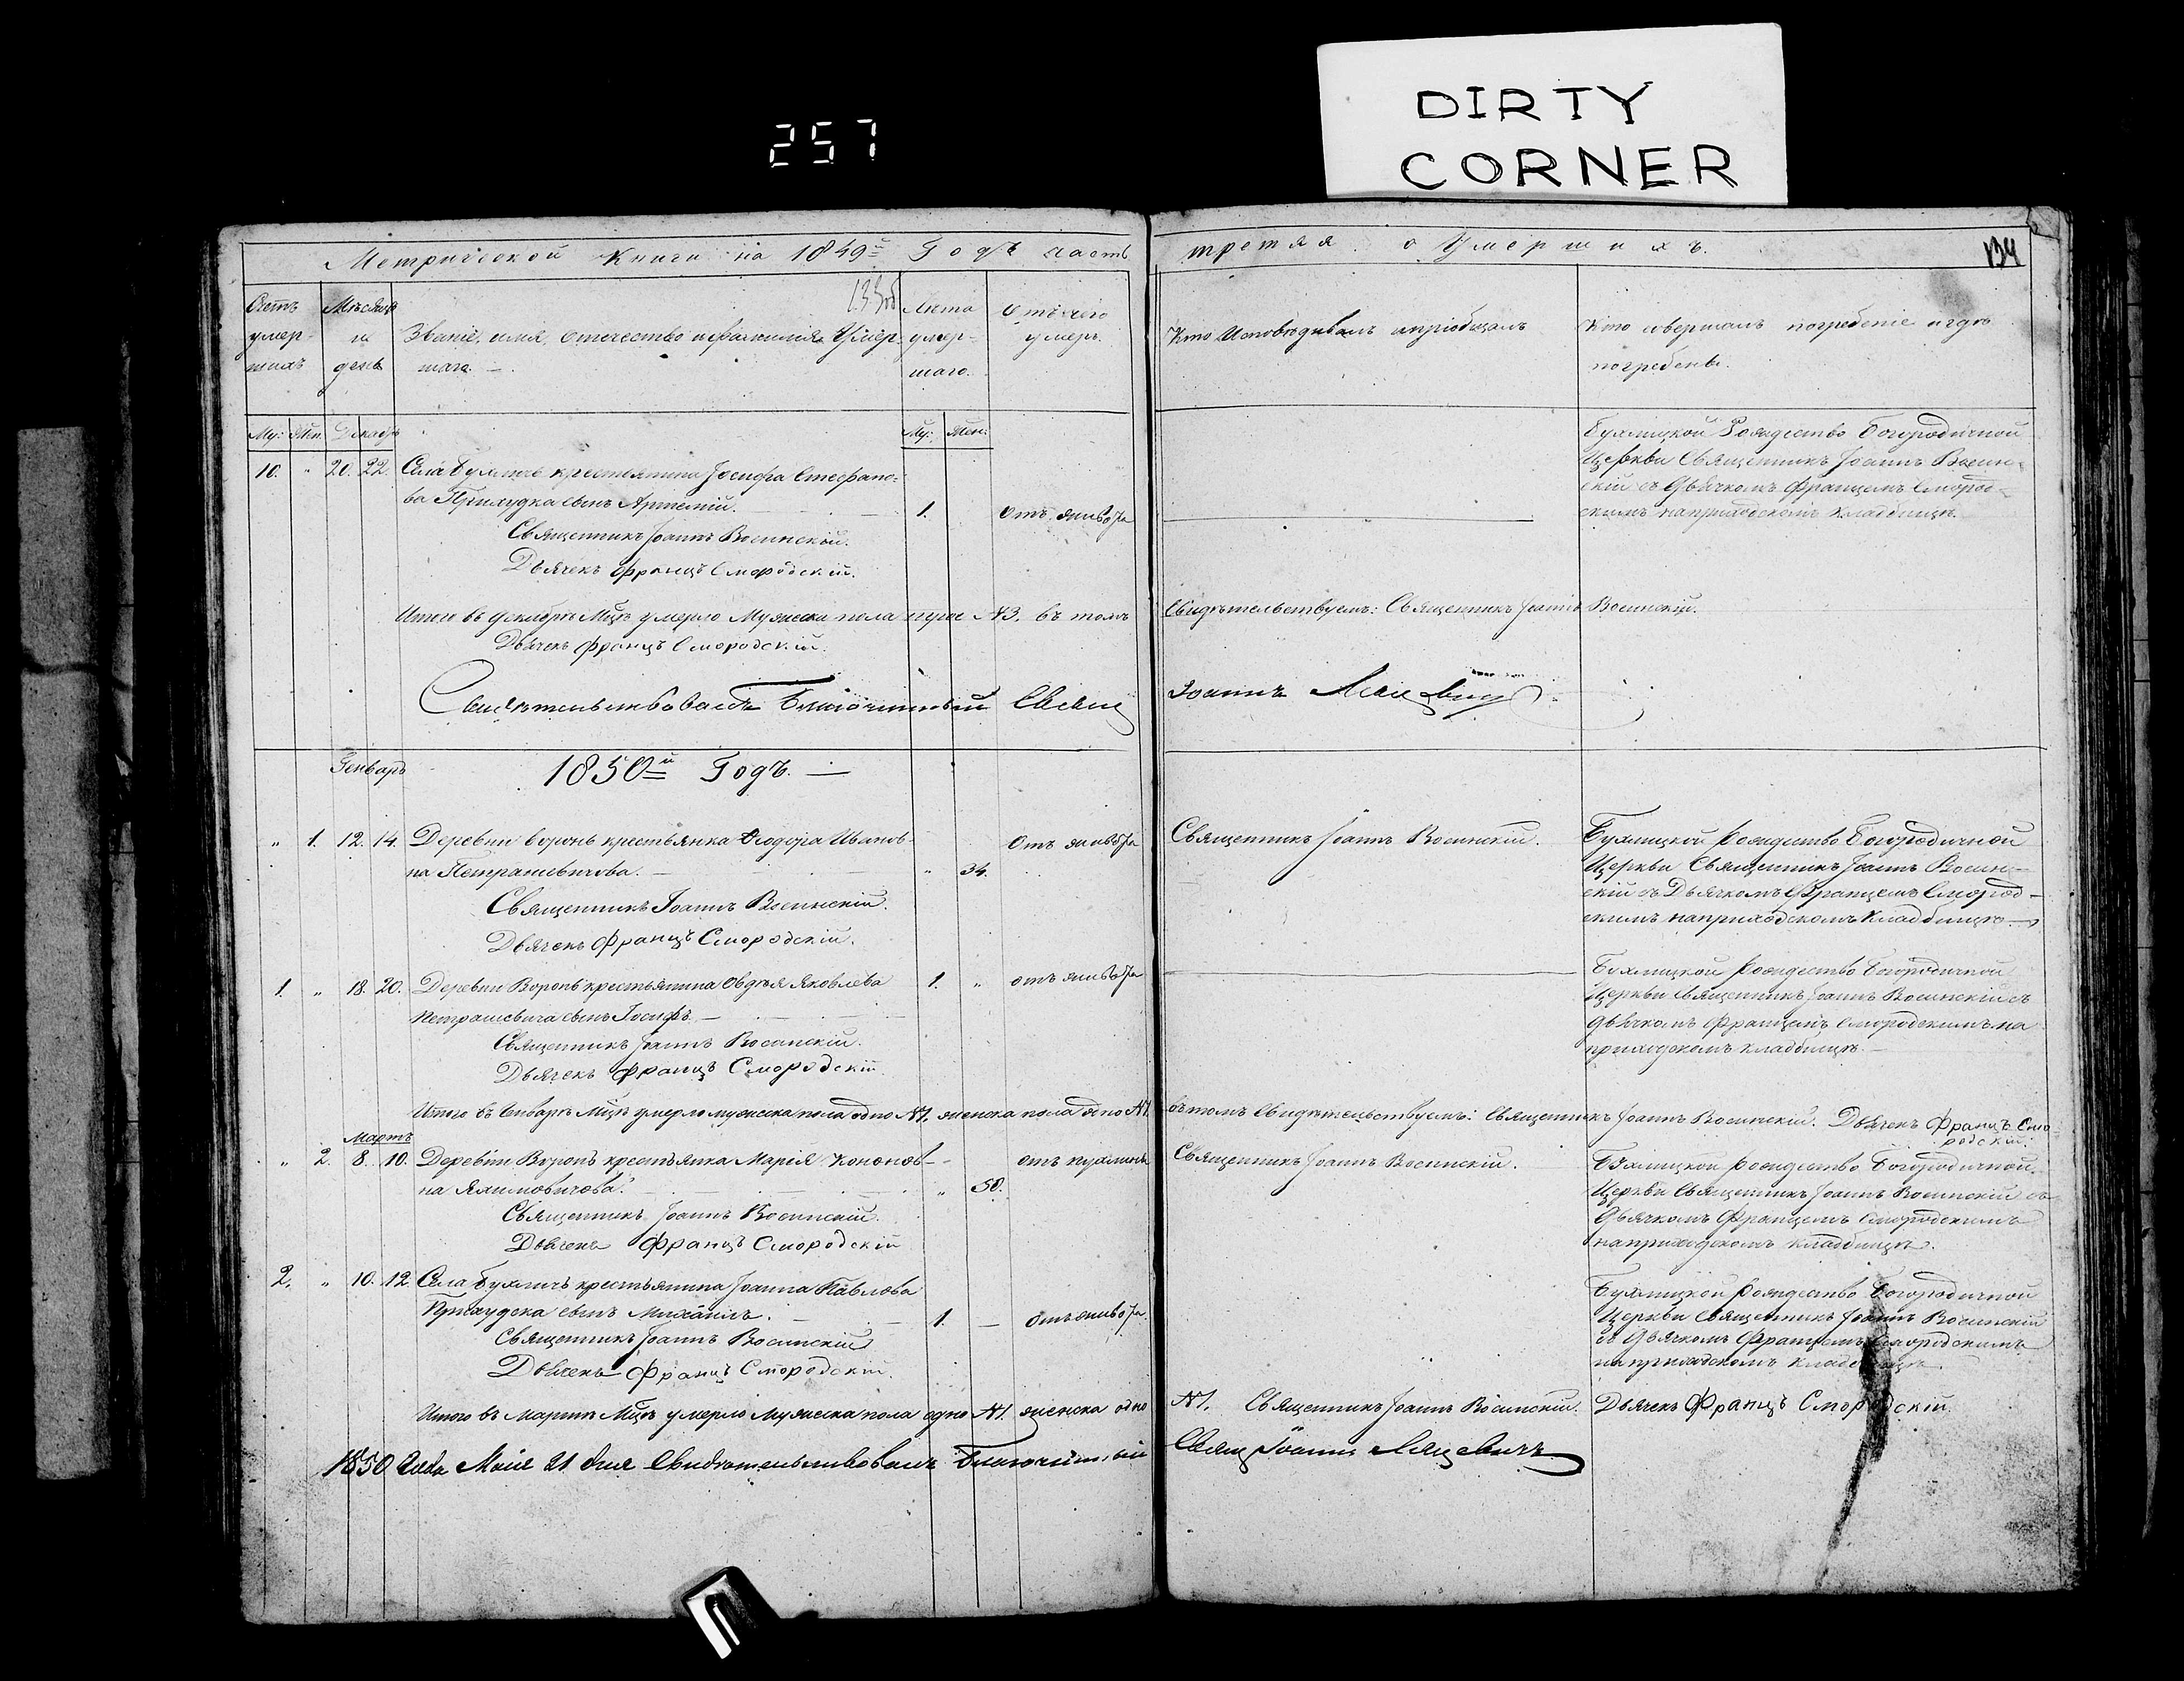 DIRTY
CORNER
257
Метрической Книги на 1849й Годъ часть третяя о Умершихъ.
134
Счетъ умер- шихъ
Мѣсяцъ и день
Званіе, имя, отечество и фамилія Умер- шаго.
Лѣта умер- шаго.
Отъ чего умеръ.
Кто Исповѣдывалъ и пріобщалъ
Кто совершалъ погребеніе и гдѣ погребены.
Му: Жен. Декабрь
Му: Жен:
10. " 20. 22. Села Бухличъ крестьянина Іосифа Стефано-
ва Прихудка сынъ Артемій. 1.
Священникъ Іоаннъ Восинскій.
Дьячекъ Францъ Смородскій.
Бухлицкой Рождество Богородичной
Церкви Священникъ Іоаннъ Восин-
скій съ Дьячкомъ Францемъ Смород-
скимъ на приходскомъ кладбищѣ.
Итого въ Декабрѣ Мцѣ умерло Мужеска пола трое №3. въ томъ Свидѣтельствуемъ: Священникъ Іоаннъ Восинскій.
Дьячекъ Францъ Смородскій.
Свидѣтельствовалъ Благочинный Свящ Іоаннъ
Генварь
1850й Годъ.
" 1. 12. 14. Деревни Воронь крестьянка Ѳеодора Иванов-
на Петрашевичова. " 34.
Священникъ Іоаннъ Восинскій.
Дьячекъ Францъ Смородскій.
Священникъ Іоаннъ Восинскій.
Бухлицкой Рождество Богородичной
Церкви Священникъ Іоаннъ Восин-
скій съ Дьячкомъ Францемъ Смород-
скимъ на приходскомъ Кладбищѣ.
1. " 18. 20. Деревни Воронь крестьянина Овдѣя Яковлева 1. "
Петрашевича сынъ Іосифъ.
Священникъ Іоаннъ Восинскій.
Дьячекъ Францъ Смородскій.
Бухлицкой Рождество Богородичной
Церкви Священникъ Іоаннъ Восинскій съ
Дьячкомъ Францемъ Смородскимъ на
приходскомъ кладбищѣ.
Итого въ Генварѣ Мцѣ умерло мужеска пола одно №1. женска пола одно №1. въ томъ Свидѣтельствуемъ: Священникъ Іоаннъ Восинскій. Дьячекъ Францъ Смо-
родскій.
Мартъ
" 2. 8. 10. Деревни Воронь крестьянка Марія Кононов-
на Яхимовичова. " 50.
Священникъ Іоаннъ Восинскій.
Дьячекъ Францъ Смородскій
отъ пухлины
Священникъ Іоаннъ Восинскій.
Бухлицкой Рождество Богородичной
Церкви Священникъ Іоаннъ Восинскій съ
Дьячкомъ Францемъ Смородскимъ
на приходскомъ кладбищѣ.
2. " 10. 12. Села Бухличъ крестьянина Іоанна Павлова
Прихудска сынъ Михаилъ. 1.
Священникъ Іоаннъ Восинскій
Дьячекъ Францъ Смородскій.
Бухлицкой Рождество Богородичной
Церкви Священникъ Іоаннъ Восинскій
съ Дьячкомъ Францемъ Смородскимъ
на приходскомъ кладбищѣ.
Итого въ Мартѣ Мцѣ умерло Мужеска пола одно №1. женска одно №1. Священникъ Іоаннъ Восинскій. Дьячекъ Францъ Смородскій.
1850 Года Маія 21 дня Свидѣтельствовалъ Благочинный Свящ Іоаннъ